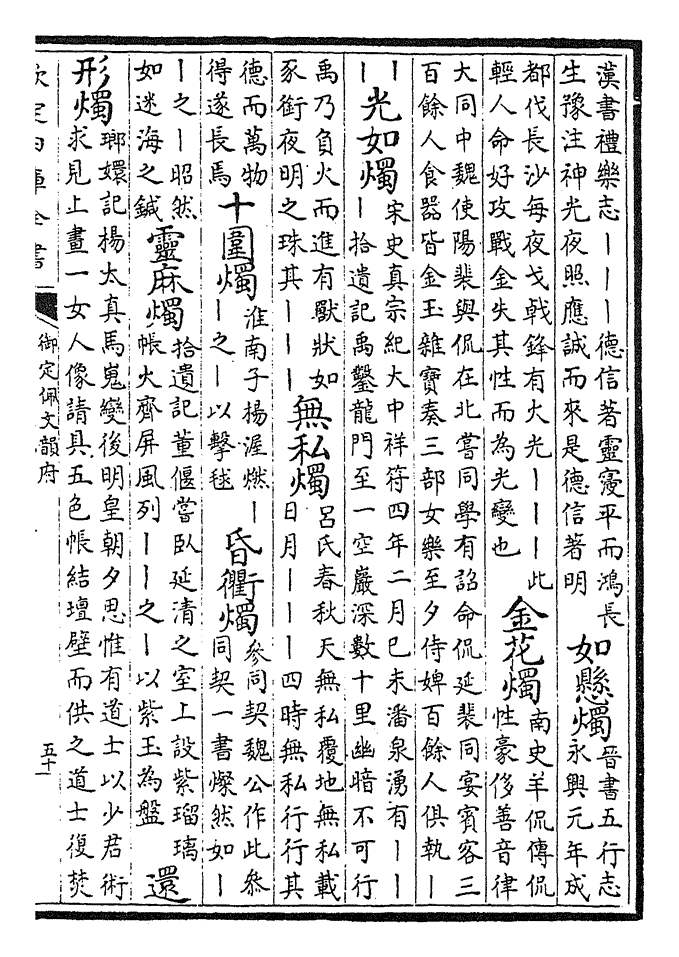 漢書禮樂志丨丨丨德信著靈寖平而鴻長
生豫注神光夜照應誠而來是德信著明
如懸燭
晉書五行志
永興元年成
都伐長沙每夜戈戟鋒有火光丨丨丨此
輕人命好攻戰金失其性而為光變也
金花燭
南史羊侃傳侃
性豪侈善音律
大同中魏使陽裴與侃在北嘗同學有詔命侃延裴同宴賓客三
百餘人食器皆金玉雜寳奏三部女樂至夕侍婢百餘人俱執丨
丨
丨
光如燭
宋史真宗紀大中祥符四年二月巳未潘泉湧有丨丨
丨拾遺記禹鑿龍門至一空巖深數十里幽暗不可行
禹乃負火而進有獸狀如
豕銜夜明之珠其丨丨丨
無私燭
呂氏春秋天無私覆地無私載
日月丨丨丨四時無私行行其
德而萬物
得遂長焉
十圍燭
淮南子楊渥燃丨
丨之丨以擊毬
昏衢燭
參同契魏公作此參
同契一書燦然如丨
丨之丨昭然
如迷海之鍼
靈麻燭
拾遺記董偃嘗臥延清之室上設紫瑠璃
帳火齊屏風列丨丨之丨以紫玉為盤
還
形燭
瑯嬛記楊太真馬嵬變後明皇朝夕思惟有道士以少君術
求見上畫一女人像請具五色帳結壇壁而供之道士復焚
欽定四庫全書
御定佩文韻府
五十一